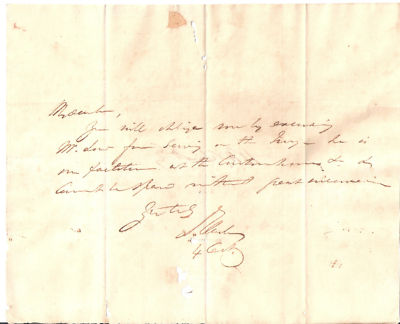 My dear Sir,
You will oblige me by excusing
Mr. from serving on the Jury - he is
our at the Custom house &
Cannot be spared without great inconvenience
4 Oct.